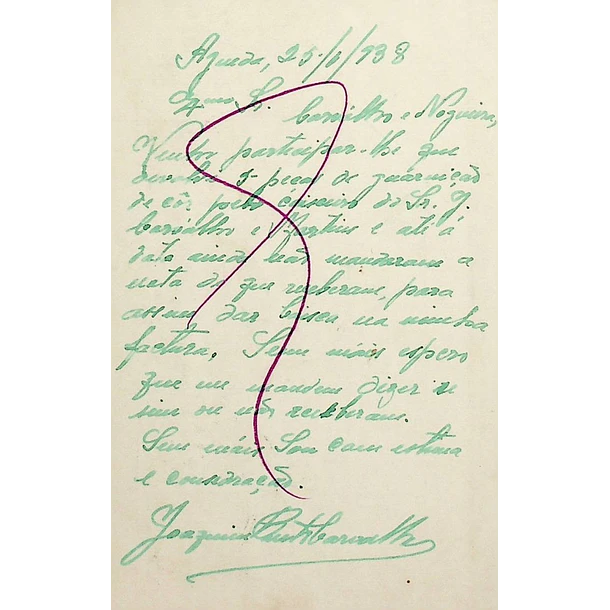 Agueda, 25/1/938
Carvalho e Nogueira,
Venho participar-lhe que
5 peças de guarnição
de côr pelo caixeiro do Sr. J.
Carvalho e Martins e até á
data ainda não mandaram a
nota de que receberam, para
assim dar baixa na minha
factura. Sem mais espero
que me mandem dizer se
sim ou não receberam.
Sem mais Sou com estima
e consideração.
Joaquim Carvalho